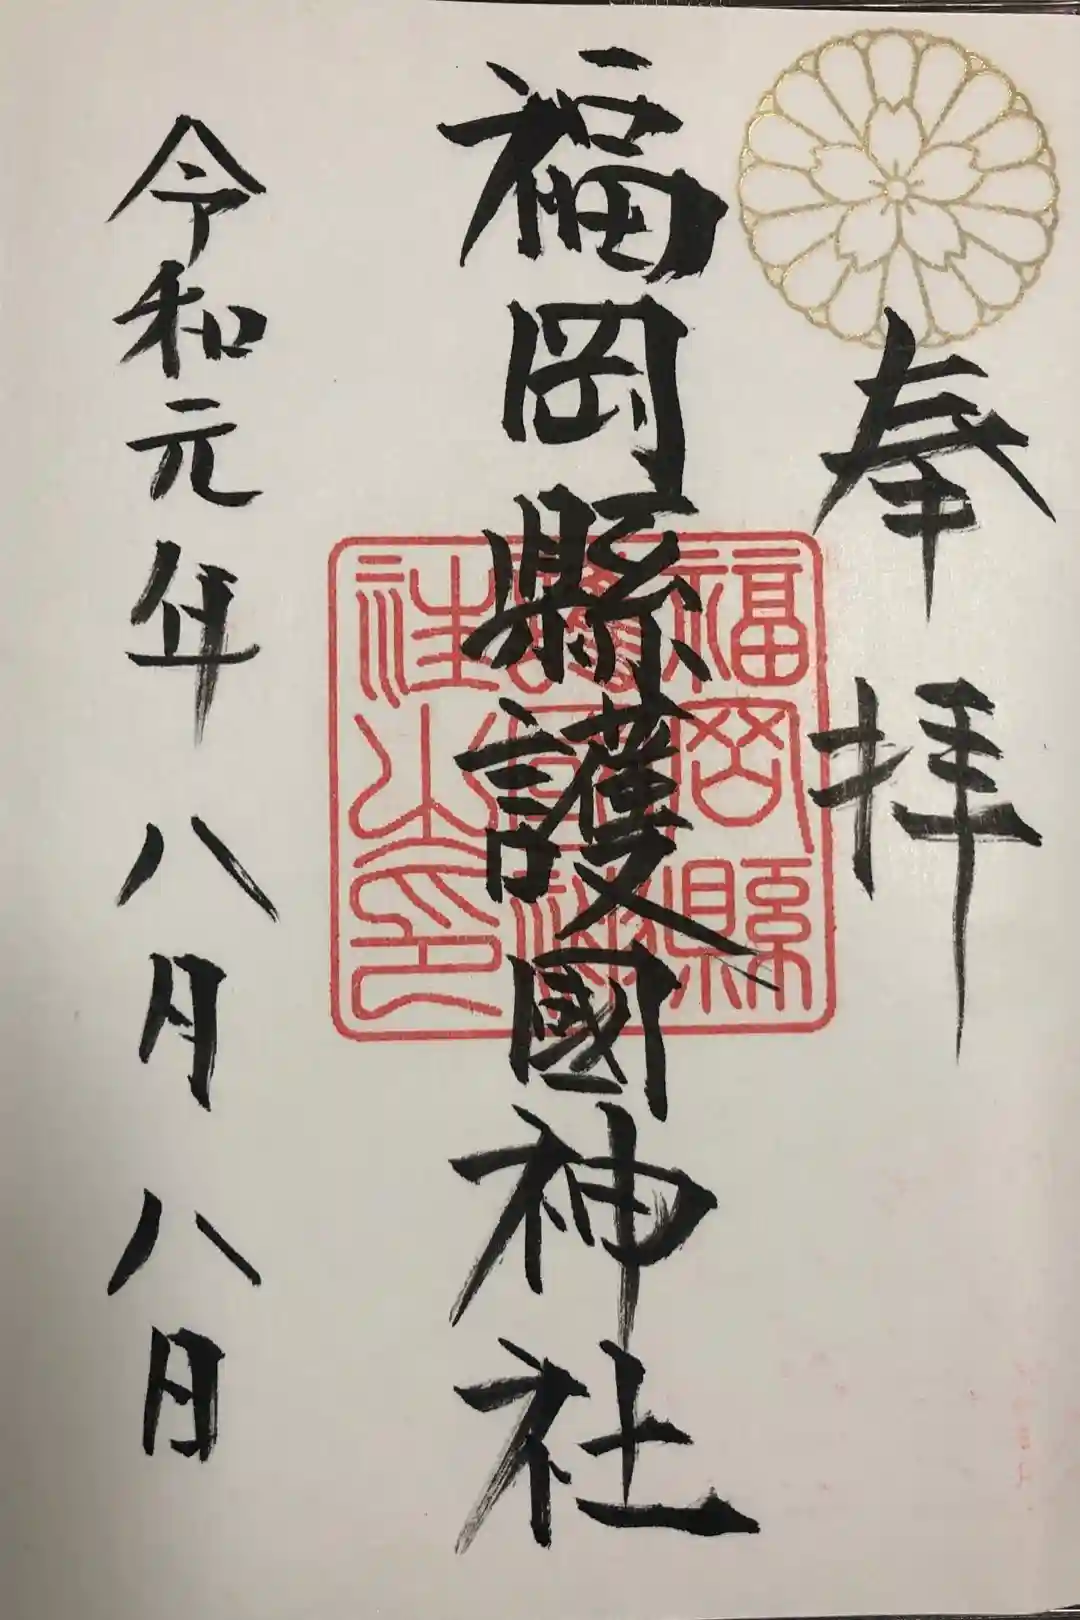 奉拝
福岡縣護國神社
福岡縣護國神社之印
令和元年八月八日